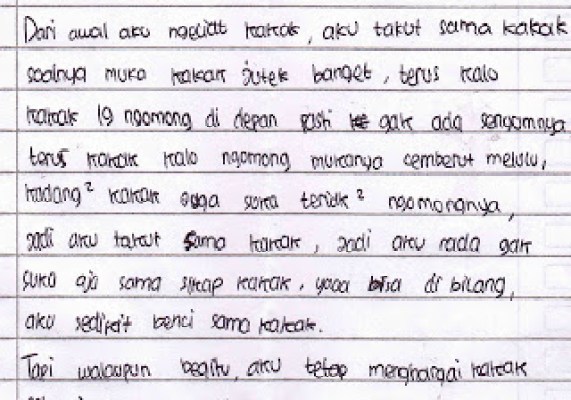 Dari awal aku ngeliat kakak, aku takut sama kakak
soalnya muka kakak jutek banget, terus kalo
kakak lg ngomong di depan pasti gak ada senyumnya
terus kakak kalo ngomong mukanya cemberut melulu,
kadang² kakak juga suka teriak² ngomongnya,
jadi aku takut sama kakak, jadi aku rada gak
suka aja sama sikap kakak, yaaa bisa di bilang,
aku sedikit benci sama kakak.
Tapi walaupun begitu, aku tetap menghargai kakak